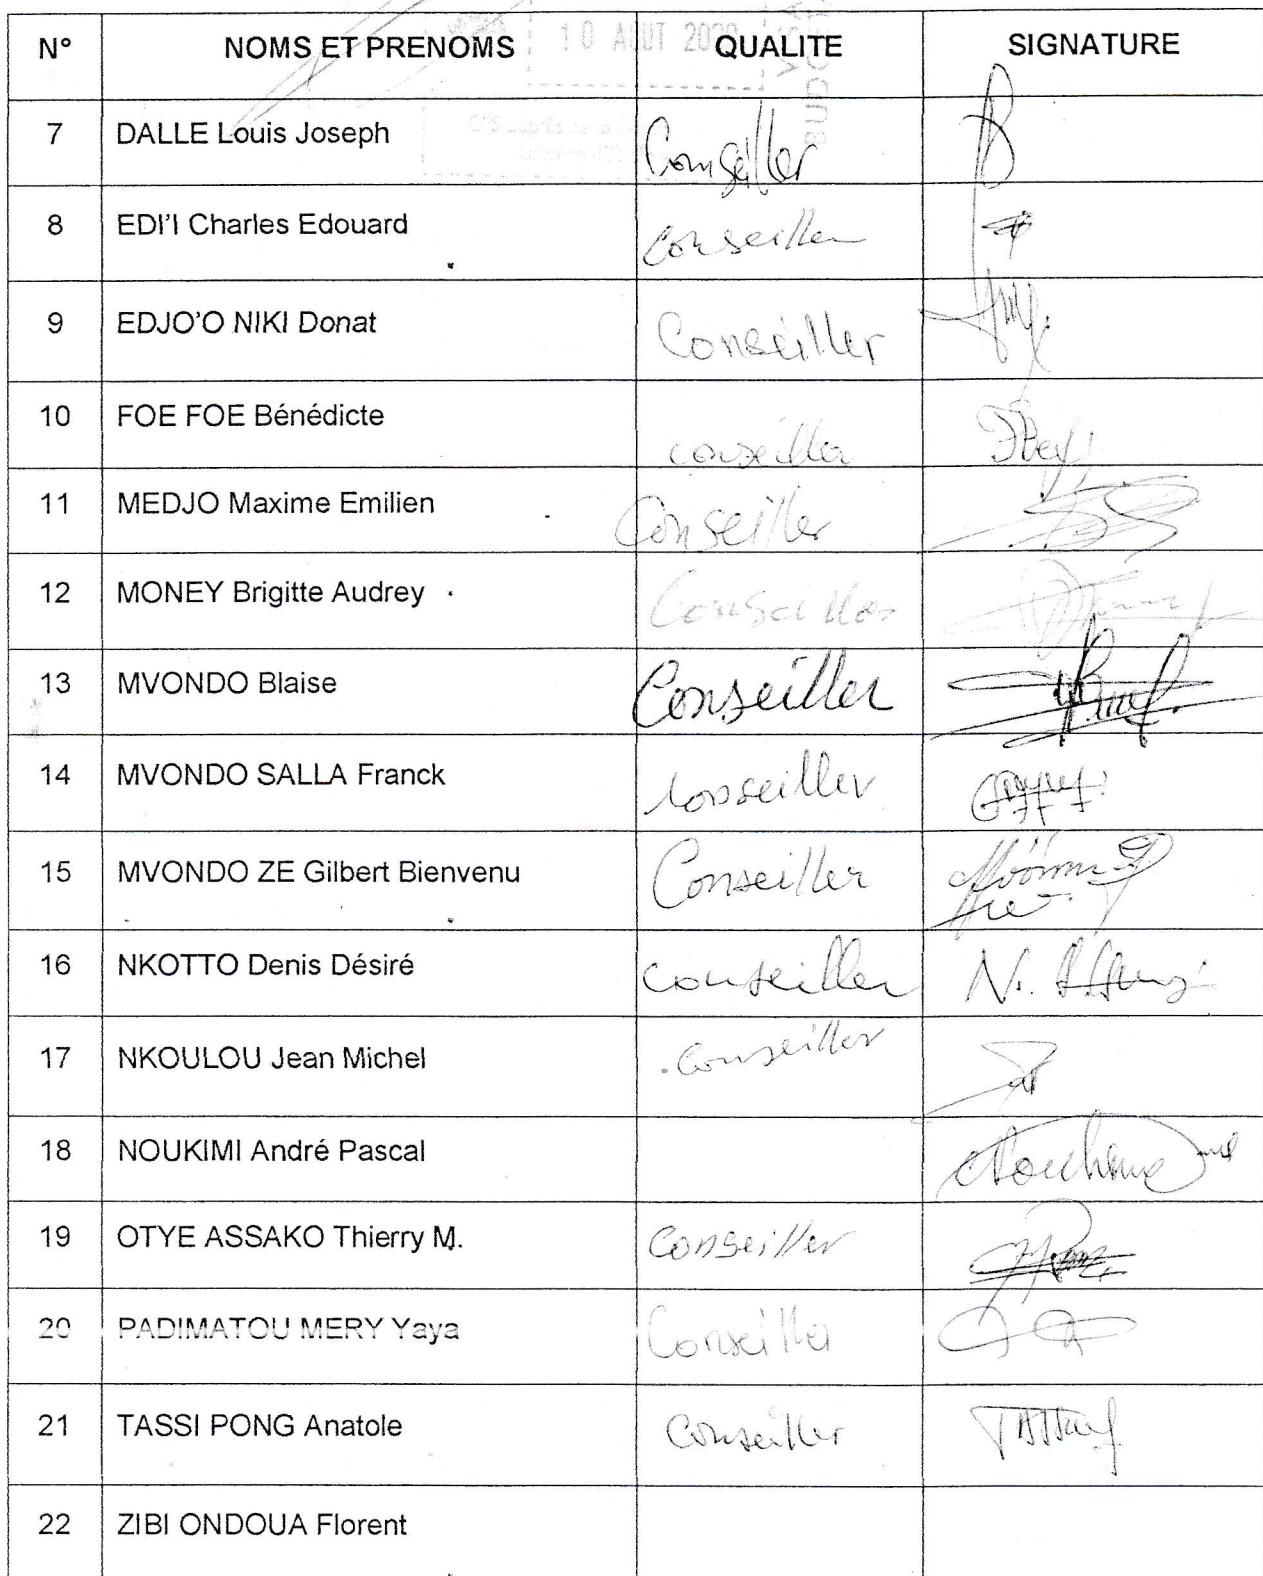 10 AOUT 2020
N° NOMS ET PRENOMS QUALITE SIGNATURE
7 DALLE Louis Joseph Conseiller
8 EDI'I Charles Edouard Conseiller
9 EDJO'O NIKI Donat Conseiller
10 FOE FOE Bénédicte conseiller
11 MEDJO Maxime Emilien Conseiller
12 MONEY Brigitte Audrey Conseiller
13 MVONDO Blaise Conseiller
14 MVONDO SALLA Franck Conseiller
15 MVONDO ZE Gilbert Bienvenu Conseiller
16 NKOTTO Denis Désiré conseiller
17 NKOULOU Jean Michel Conseiller
18 NOUKIMI André Pascal
19 OTYE ASSAKO Thierry M. Conseiller
20 PADIMATOU MERY Yaya Conseiller
21 TASSI PONG Anatole Conseiller
22 ZIBI ONDOUA Florent